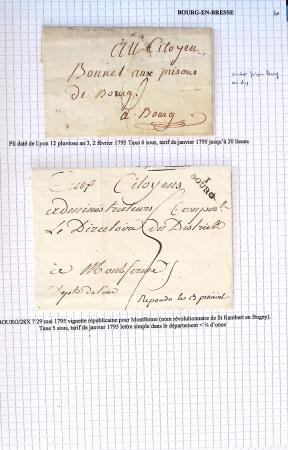 BOURG-EN-BRESSE
Au Citoyen
Bonnet aux prisons
de Bourg
à Bourg
Pli daté de Lyon 12 pluviose an 3, 2 février 1795 Taxe 6 sous, tarif de janvier 1795 jusqu'à 20 lieues
Aux Citoyens
administrateurs Compost
Le Directoire du District
1
BOURG
5
ce Montferme
Repondu le 13 prairial
BOURG/28X 7 29 mai 1795 vignette républicaine pour Montferme (nom révolutionnaire de St Rambert en Bugey).
Taxe 5 sous, tarif de janvier 1795 lettre simple dans le département < ¼ d'once